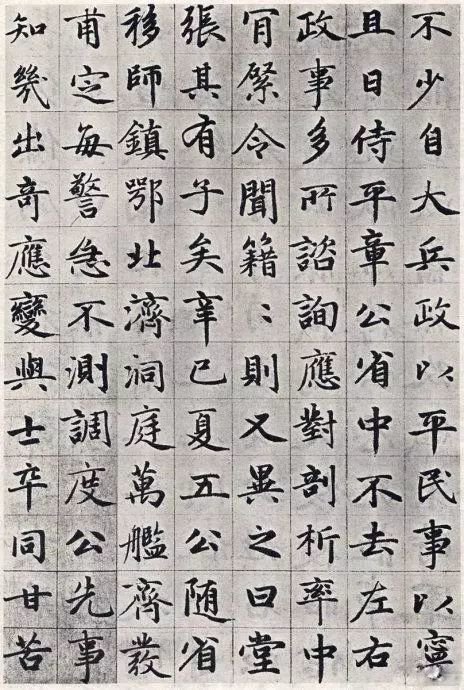 不少自大兵政以平民事以寧
且日侍平章公省中不去左右
政事多所諮詢應對剖析率中
肯綮令聞籍〻則又異之曰堂
張其有子矣辛巳夏五公随省
移師鎮鄂北濟洞庭萬艦齊發
甫定每警急不測調度公先事
知幾出奇應變與士卒同甘苦